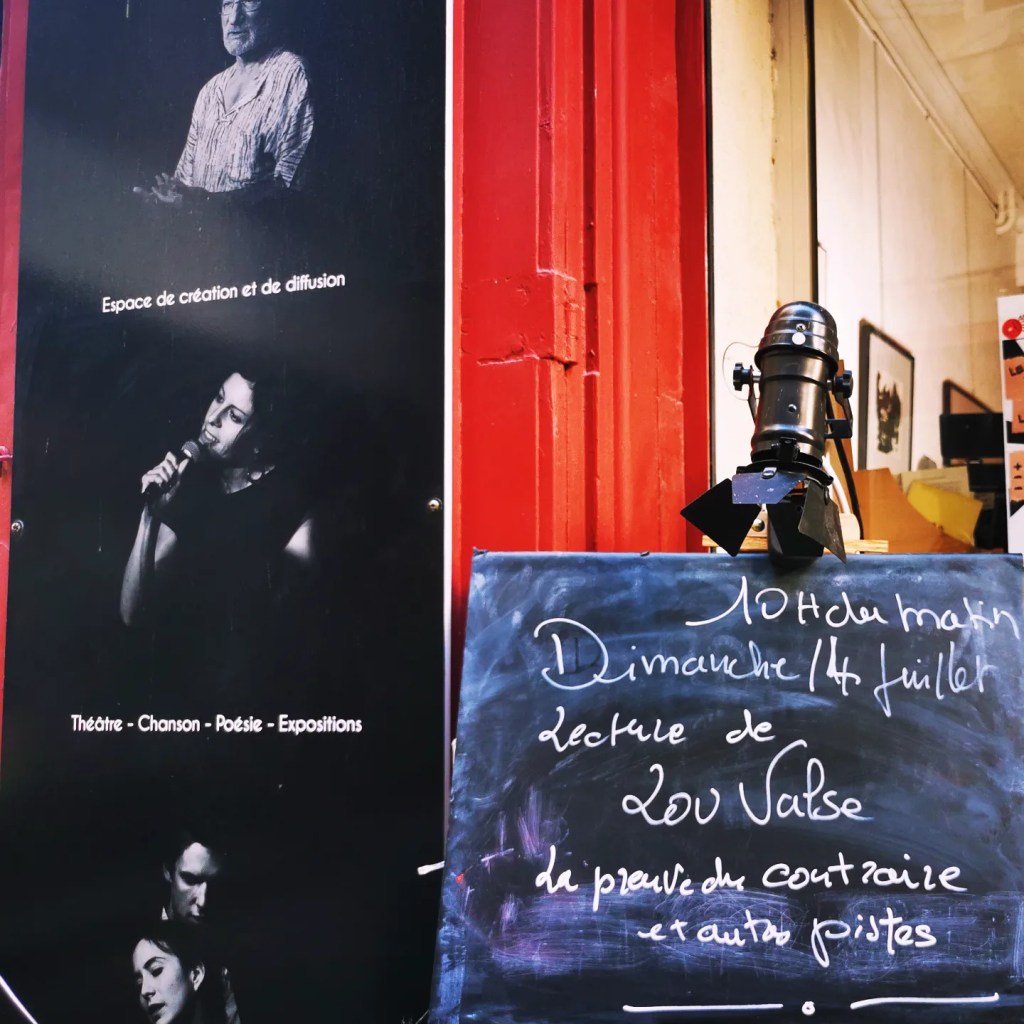 Espace de création et de diffusion
Théâtre - Chanson - Poésie - Expositions
10H du matin
Dimanche 14 juillet
Lecture de
Lou Valse
La preuve du contraire
et autres pistes